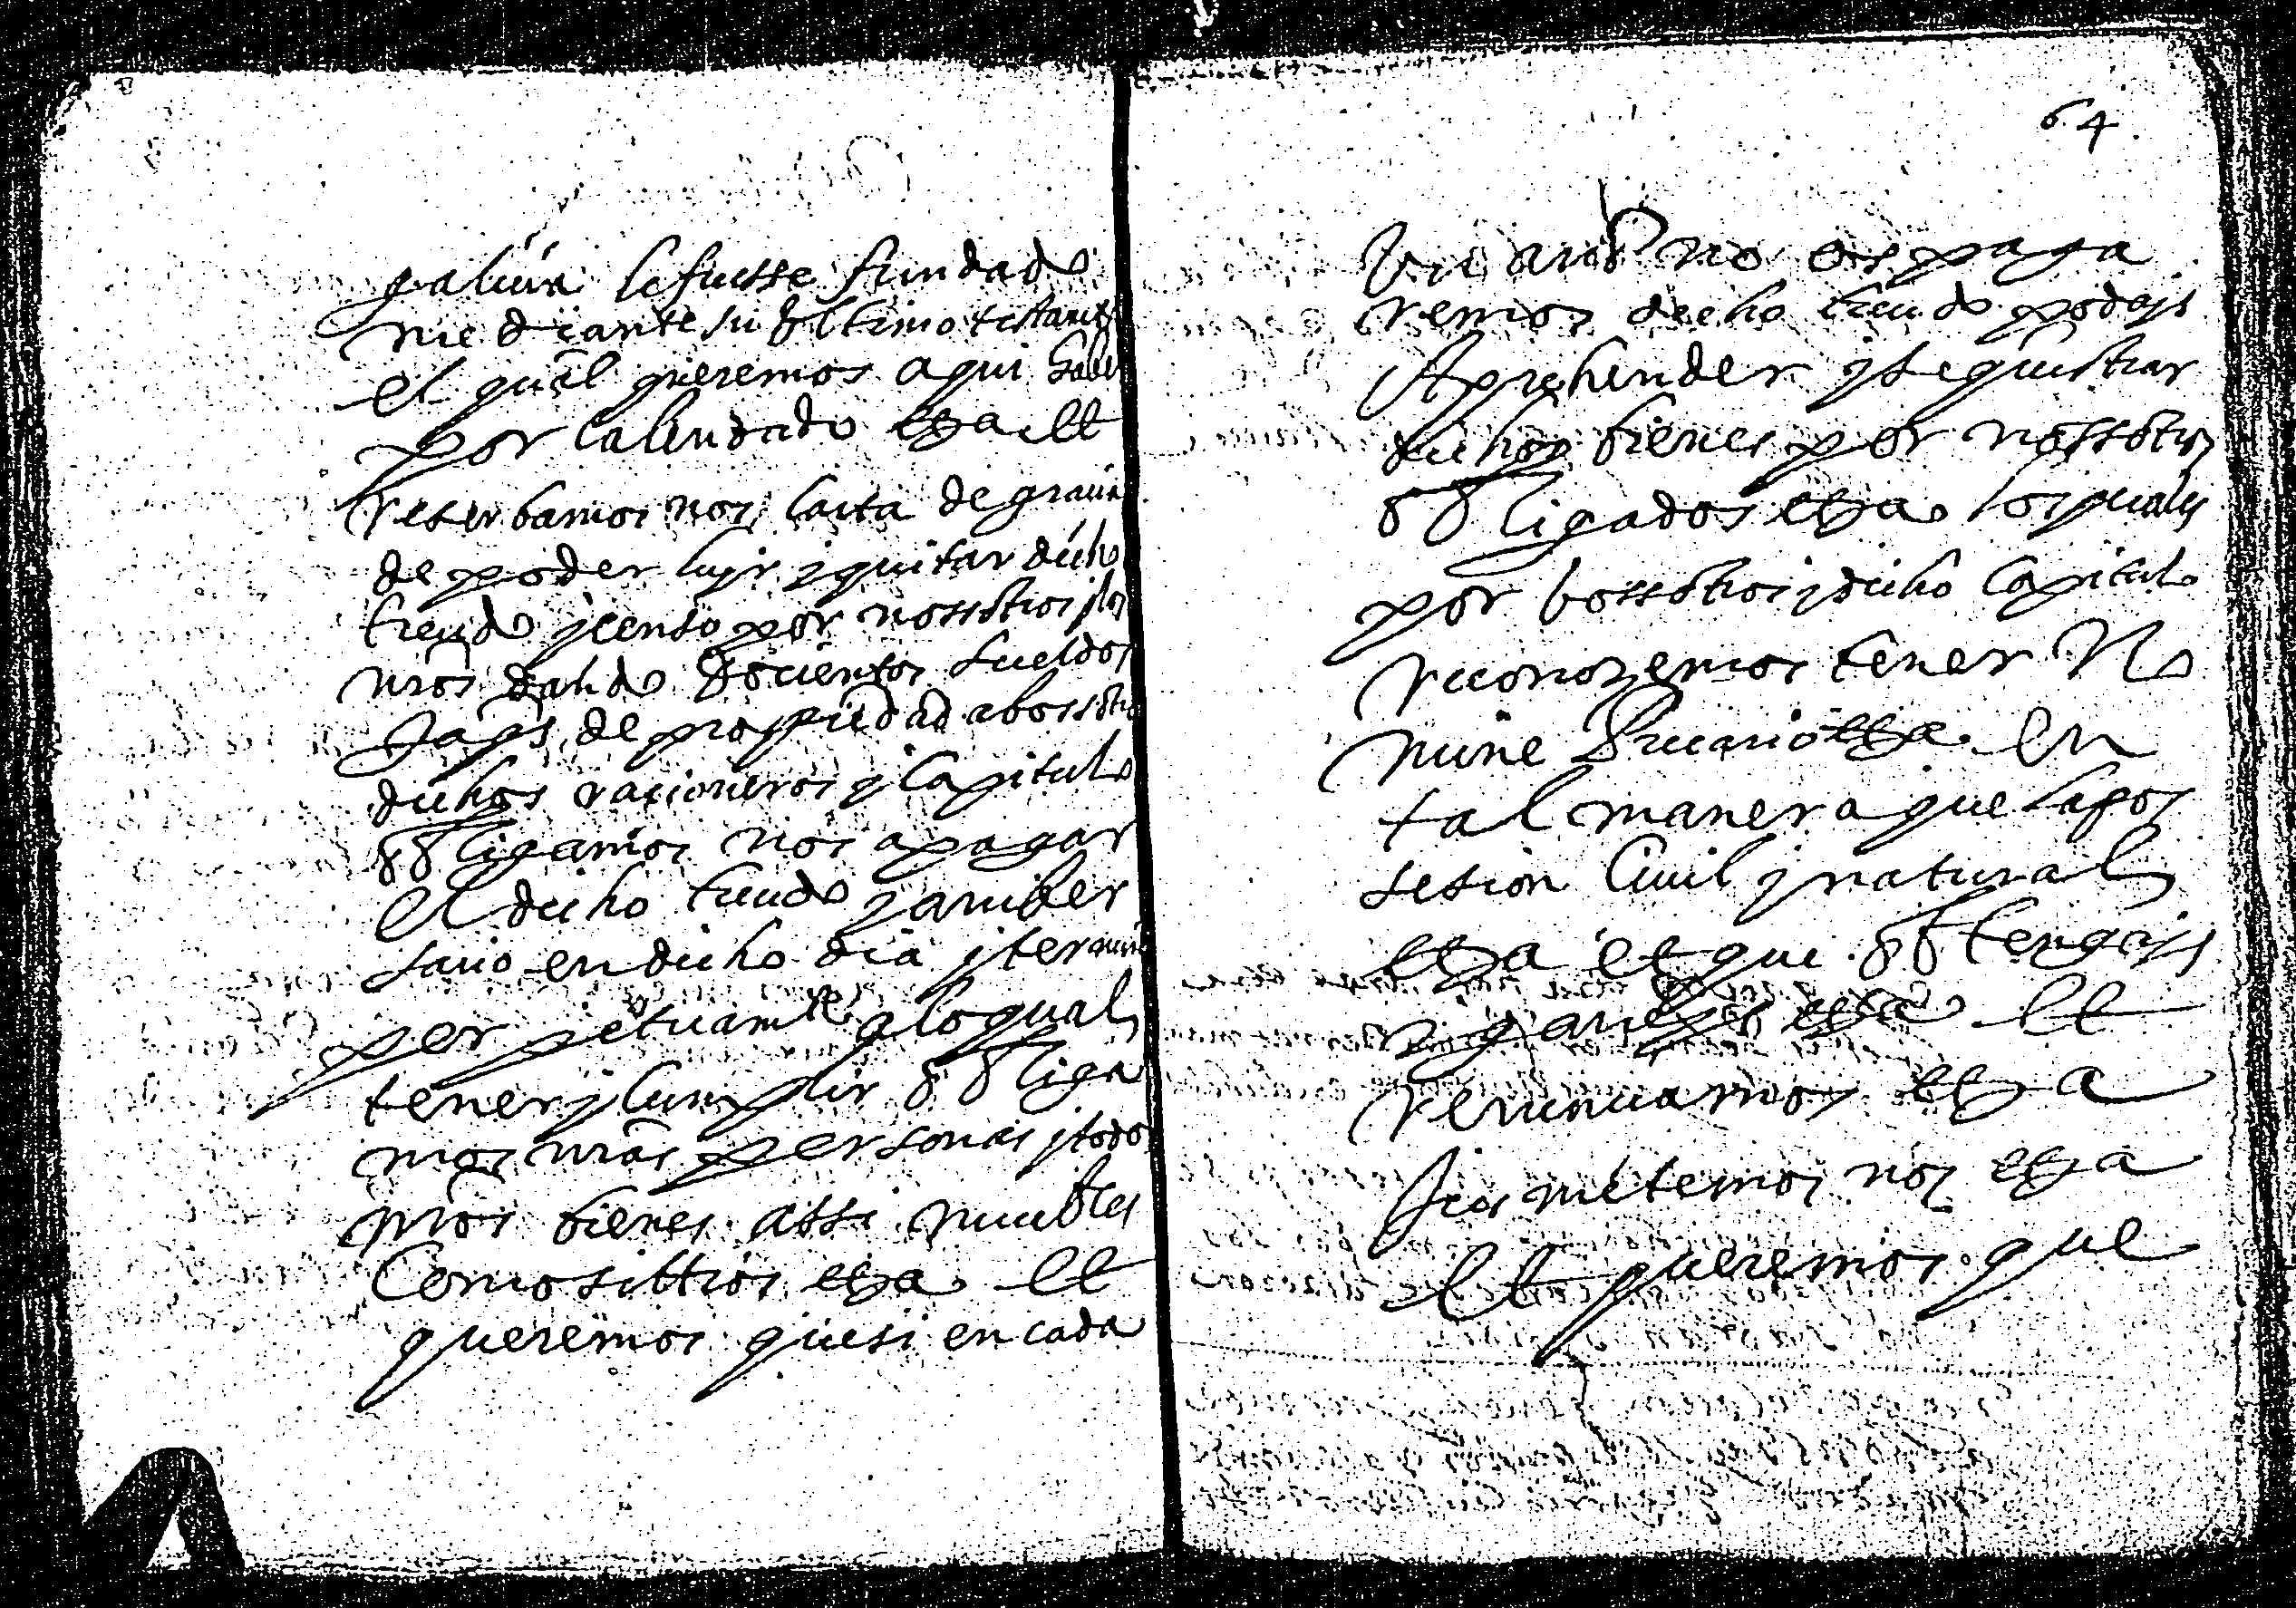 galiua le fuesse fundado
mediante su Vltimo testamto
el qual queremos aqui haber
por calendado etza et
reserbamos nos carta de gracia
de poder luyr y quitar dicho
treudo y censo por nossotros y los
nros dando docientos sueldos
Jaqs de propiedad a bossotros
dichos racioneros y Capitulo
obligamos nos a pagar
el dicho treudo y aniber
sario en dicho dia y termino
perpetuamte a lo qual
tener y cumplir obliga
mos nras personas y todos
nros bienes assi muebles
Como sittios etza et
queremos que si en cada
64
Vn año no os paga
remos dicho treudo podays
Aprehender y sequestrar
dichos bienes por nossotros
obligados etza los quales
por bossotros y dicho Capitulo
reconozemos tener No
mine Precario etza en
tal manera que la pos
sesion Ciuil y natural
etza et que obtengays
y ganeys etza et
renunciamos etza
sosmetemos nos etza
et queremos que